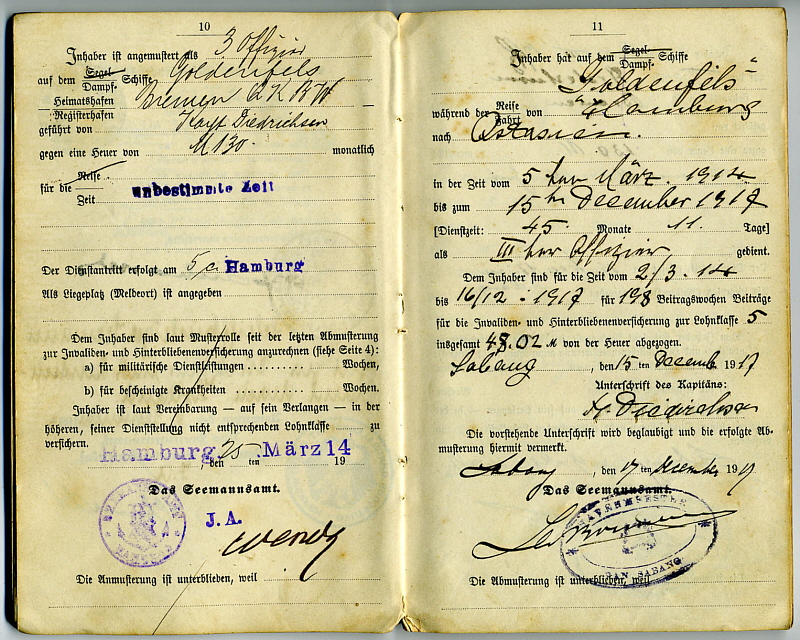 10
Inhaber ist angemustert als 3 Offizier
auf dem Segel- Dampf- Schiffe Goldenfels
Heimatshafen Bremen Q K B W
Registerhafen
geführt von Kapt Diedrichsen
gegen eine Heuer von M 130.- monatlich
für die Reise
Zeit unbestimmte Zeit
Der Dienstantritt erfolgt am 5 c. Hamburg
Als Liegeplatz (Meldeort) ist angegeben
Dem Inhaber sind laut Musterrolle seit der letzten Abmusterung
zur Invaliden- und Hinterbliebenenversicherung anzurechnen (siehe Seite 4):
a) für militärische Dienstleistungen .......... Wochen,
b) für bescheinigte Krankheiten .......... Wochen.
Inhaber ist laut Vereinbarung — auf sein Verlangen — in der
höheren, seiner Dienststellung nicht entsprechenden Lohnklasse zu
versichern.
Hamburg, den 25 ten März 14 19
Das Seemannsamt.
J.A.
Wendt
Die Anmusterung ist unterblieben, weil
11
Inhaber hat auf dem Segel- Dampf- Schiffe
"Goldenfels"
während der Reise Fahrt von Hamburg
nach Ostasien.
in der Zeit vom 5 ten März. 1914
bis zum 15 ten December 1917
[Dienstzeit: 45. Monate 11. Tage]
als III ter Offizier gedient.
Dem Inhaber sind für die Zeit vom 2/3. 14
bis 16/12 . 1917 für 198 Beitragswochen Beiträge
für die Invaliden- und Hinterbliebenenversicherung zur Lohnklasse 5
insgesamt 47.02 M von der Heuer abgezogen.
Sabang, den 15 ten Decemb. 1917
Unterschrift des Kapitäns:
H Diedrichsen
Die vorstehende Unterschrift wird beglaubigt und die erfolgte Ab-
musterung hiermit vermerkt.
Sabang, den 17 ten December 1917
Das Seemannsamt.
HAVENMEESTER
VAN SABANG
Die Abmusterung ist unterblieben, weil